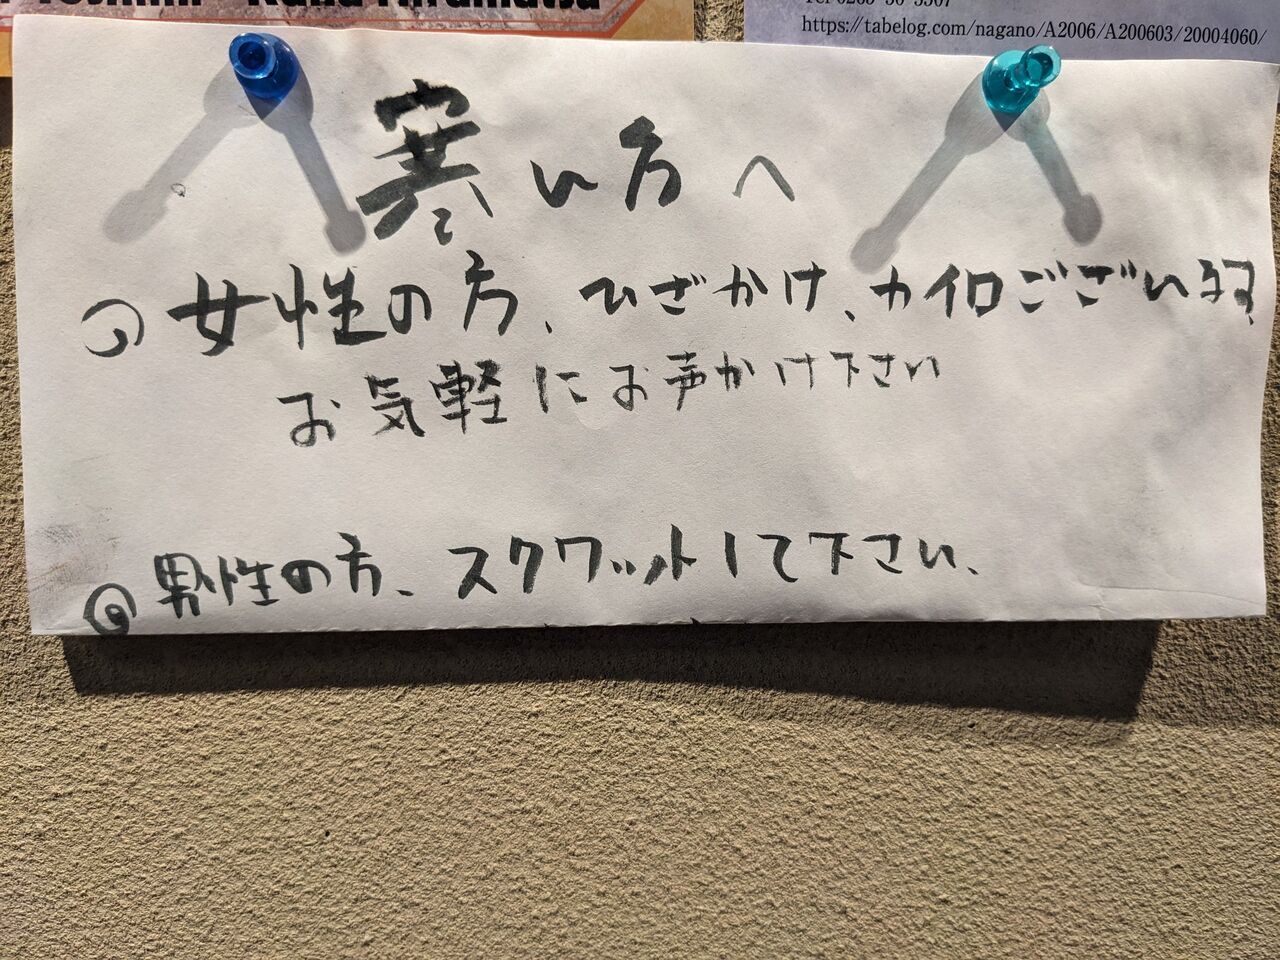 https://tabelog.com/nagano/A2006/A200603/20004060/
寒い方へ
女性の方、ひざかけ、カイロございます。
お気軽にお声かけ下さい
男性の方、スクワットして下さい。